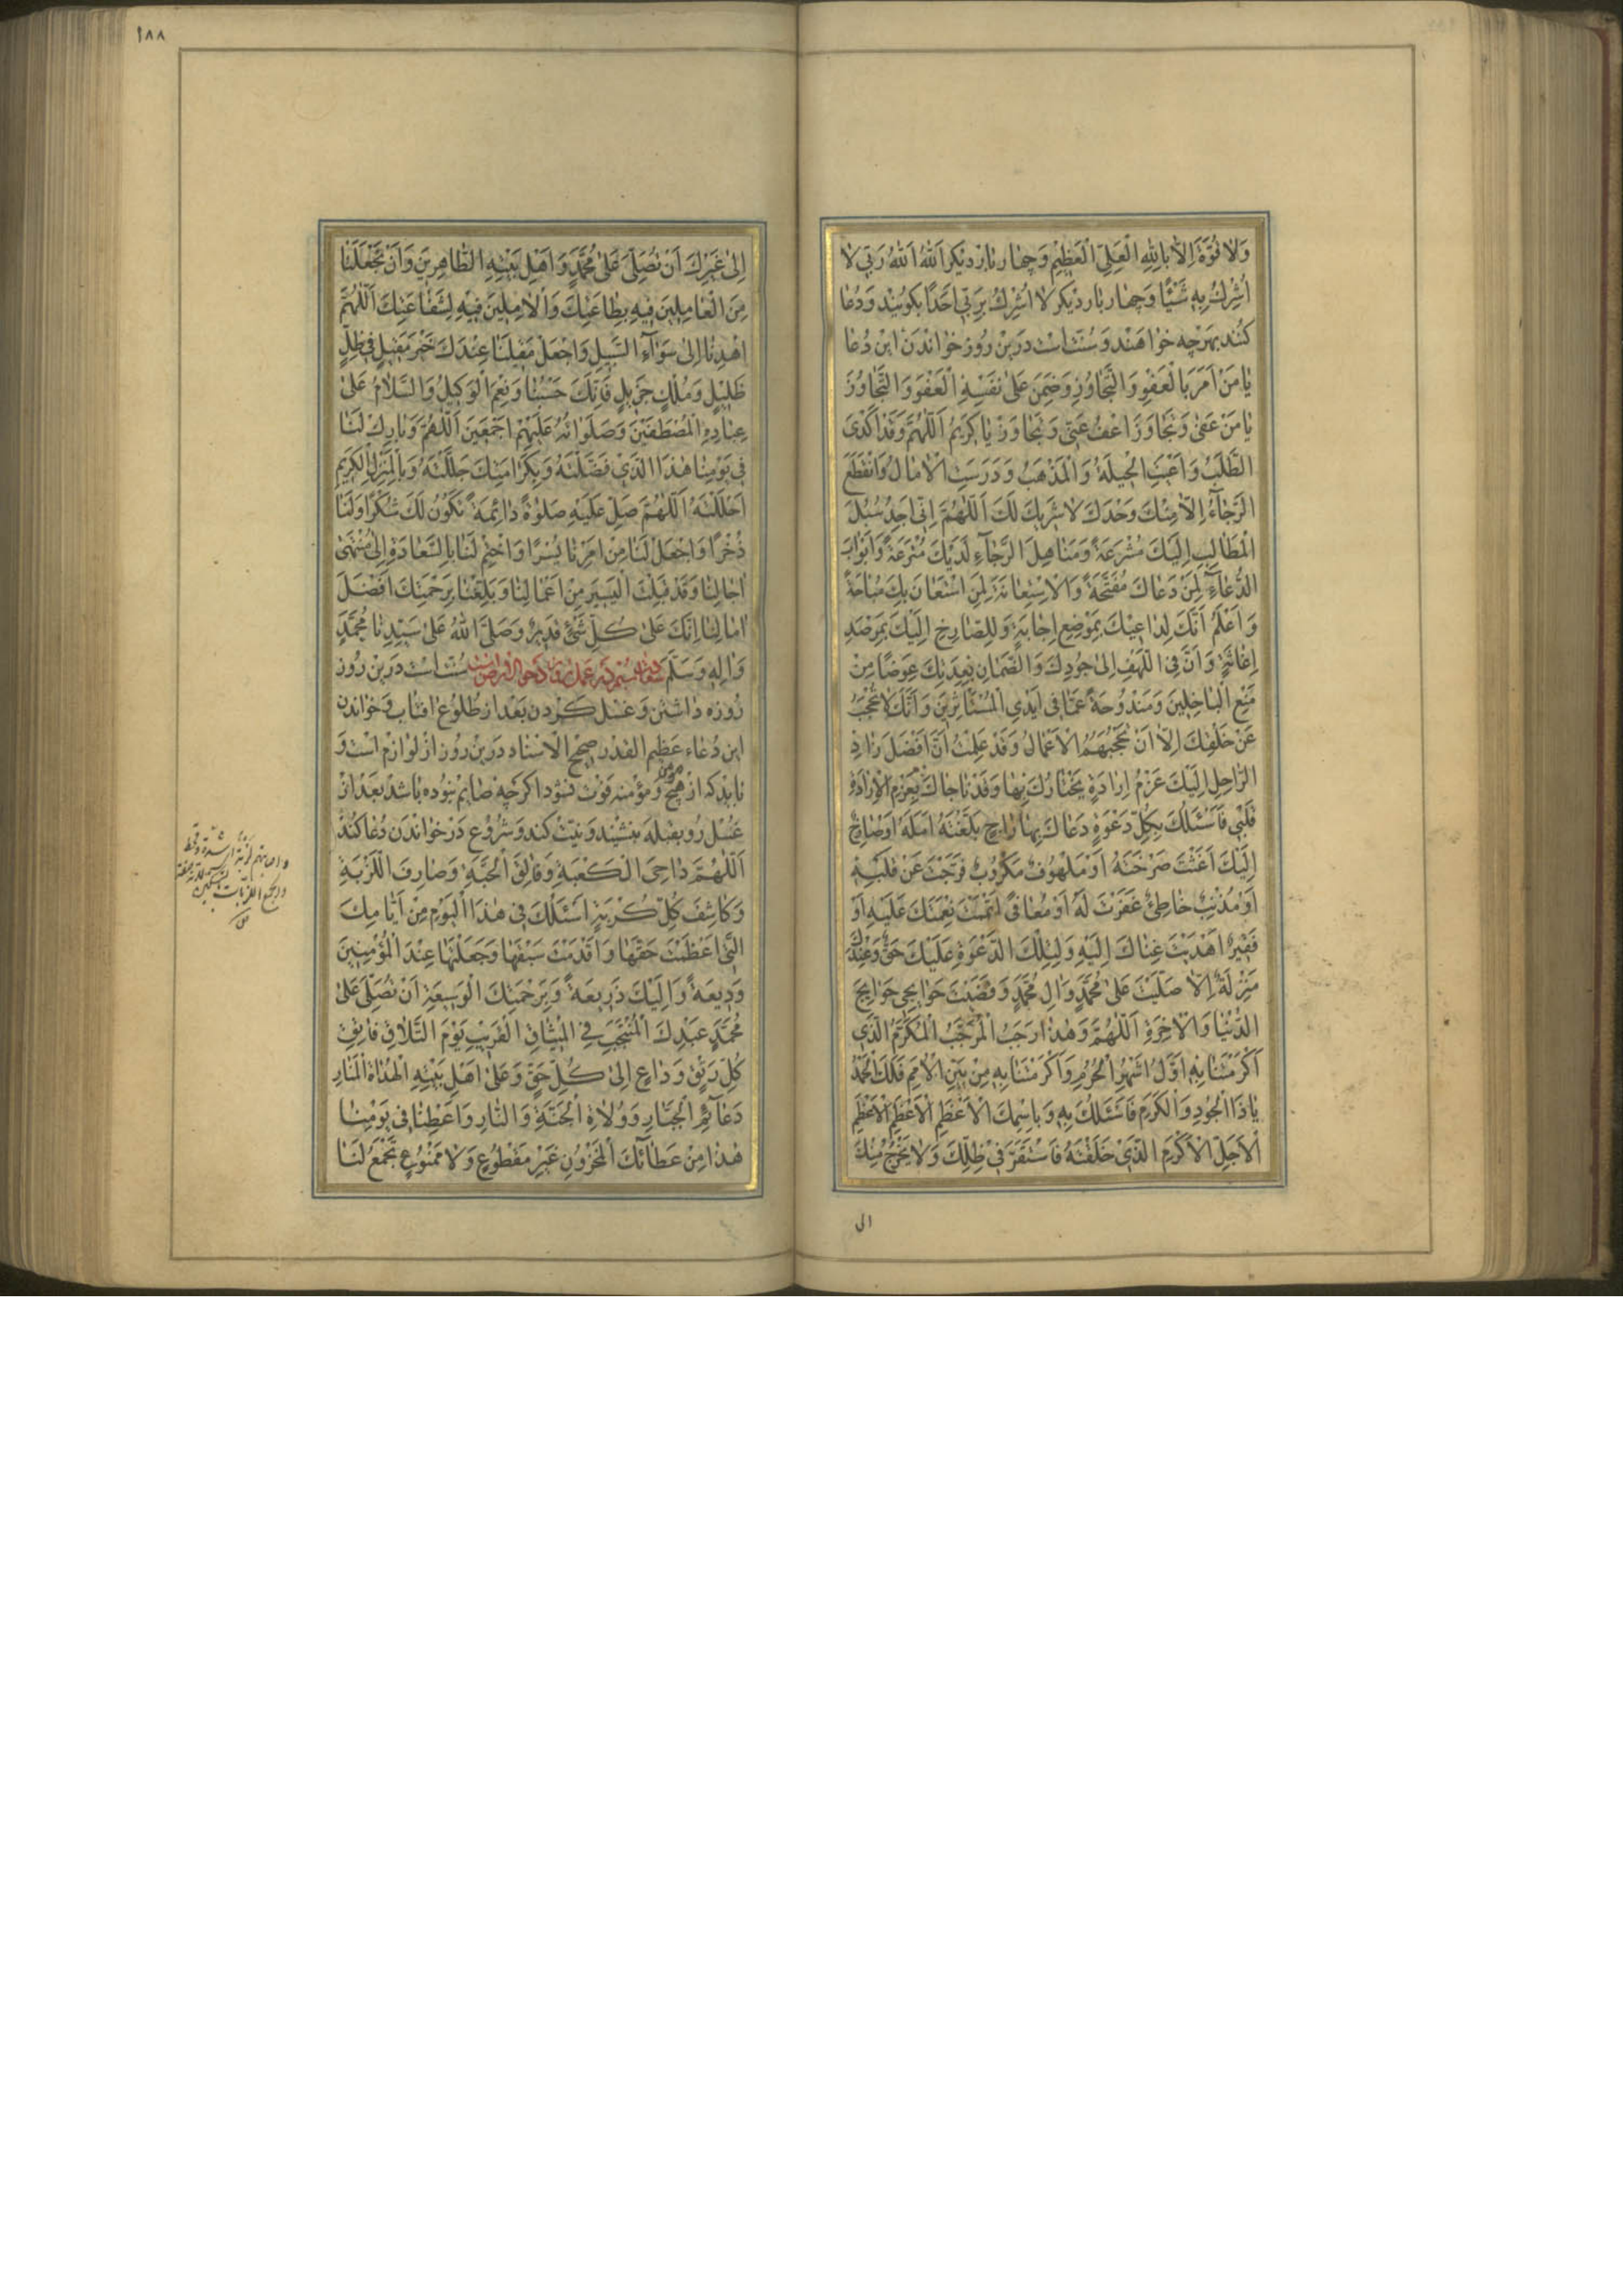 وَلَا قُوَّةَ اِلَّا بِاللهِ الْعَلِيِّ الْعَظِيْمِ وَچهار بار دیکر اَللهُ اَللهُ رَبّي لا
اُشْرِكُ بِهِ شَيْئًا وَچهار بار دیکر لا اُشْرِكُ بِرَبّي اَحَدًا بکویند وَدُعا
کنند بهرچه خواهند وَسُنّت است در ین روز خواندن این دُعا
يٰا مَنْ اَمَرَ بِالْعَفْوِ وَالتَّجٰاوُزِ وَضَمِنَ عَلىٰ نَفْسِهِ الْعَفْوَ وَالتَّجٰاوُزَ
يٰا مَنْ عَفىٰ وَتَجٰاوَزَ اعْفُ عَنّي وَتَجٰاوَزْ يٰا كَريمُ اَللّٰهُمَّ وَقَدْ اَكْدَى
الطَّلَبُ وَاَعْيَتِ الْحيلَةُ وَالْمَذْهَبُ وَدَرَسَتِ الْاٰمٰالُ وَانْقَطَعَ
الرَّجٰآءُ اِلّٰا مِنْكَ وَحْدَكَ لا شَريكَ لَكَ اَللّٰهُمَّ اِنّي اَجِدُ سُبُلَ
الْمَطٰالِبِ اِلَيْكَ مُشْرَعَةً وَمَنٰاهِلَ الرَّجٰآءِ لَدَيْكَ مُتْرَعَةً وَاَبْوٰابَ
الدُّعٰآءِ لِمَنْ دَعٰاكَ مُفَتَّحَةً وَالْاِسْتِعٰانَةَ لِمَنِ اسْتَعٰانَ بِكَ مُبٰاحَةً
وَاَعْلَمُ اَنَّكَ لِدٰاعيكَ بِمَوْضِعِ اِجٰابَةٍ وَلِلصّٰارِخِ اِلَيْكَ بِمَرْصَدِ
اِغٰاثَةٍ وَاَنَّ فِى اللَّهْفِ اِلىٰ جُودِكَ وَالضَّمٰانِ بِعِدَتِكَ عِوَضًا مِنْ
مَنْعِ الْبٰاخِلينَ وَمَنْدُوحَةً عَمّٰا في اَيْدِى الْمُسْتَأْثِرينَ وَاَنَّكَ لا تُحْجَبُ
عَنْ خَلْقِكَ اِلّٰا اَنْ تَحْجُبَهُمُ الْاَعْمٰالُ وَقَدْ عَلِمْتُ اَنَّ اَفْضَلَ زٰادِ
الرّٰاحِلِ اِلَيْكَ عَزْمُ اِرٰادَةٍ يَخْتٰارُكَ بِهٰا وَقَدْ نٰاجٰاكَ بِعَزْمِ الْاِرٰادَةِ
قَلْبي فَاَسْئَلُكَ بِكُلِّ دَعْوَةٍ دَعٰاكَ بِهٰا رٰاجٍ بَلَّغْتَهُ اَمَلَهُ اَوْصٰارِخٍ
اِلَيْكَ اَغَثْتَ صَرْخَتَهُ اَوْ مَلْهُوفٍ مَكْرُوبٍ فَرَّجْتَ عَنْ قَلْبِهِ
اَوْ مُذْنِبٍ خٰاطِئٍ غَفَرْتَ لَهُ اَوْ مُعٰافًى اَتْمَمْتَ نِعْمَتَكَ عَلَيْهِ اَوْ
فَقيرٍ اَهْدَيْتَ غِنٰاكَ اِلَيْهِ وَلِتِلْكَ الدَّعْوَةِ عَلَيْكَ حَقٌّ وَعِنْدَكَ
مَنْزِلَةٌ اِلّٰا صَلَّيْتَ عَلىٰ مُحَمَّدٍ وَاٰلِ مُحَمَّدٍ وَقَضَيْتَ حَوٰائِجي حَوٰائِجَ
الدُّنْيٰا وَالْاٰخِرَةِ اَللّٰهُمَّ وَهٰذٰا رَجَبُ الْمُرَجَّبُ الْمُكَرَّمُ الَّذي
اَكْرَمْتَنٰا بِهِ اَوَّلُ اَشْهُرِ الْحُرُمِ وَاَكْرَمْتَنٰا بِهِ مِنْ بَيْنِ الْاُمَمِ فَلَكَ الْحَمْدُ
يٰا ذَا الْجُودِ وَالْكَرَمِ فَاَسْئَلُكَ بِهِ وَبِاسْمِكَ الْاَعْظَمِ الْاَعْظَمِ الْاَعْظَمِ
الْاَجَلِّ الْاَكْرَمِ الَّذي خَلَقْتَهُ فَاسْتَقَرَّ في ظِلِّكَ وَلا يَخْرُجُ مِنْكَ
الى
١٨٨
اِلىٰ غَيْرِكَ اَنْ تُصَلِّيَ عَلىٰ مُحَمَّدٍ وَاَهْلِ بَيْتِهِ الطّٰاهِرينَ وَاَنْ تَجْعَلَنٰا
مِنَ الْعٰامِلينَ فيهِ بِطٰاعَتِكَ وَالْاٰمِلينَ فيهِ لِشَفٰاعَتِكَ اَللّٰهُمَّ
اهْدِنٰا اِلىٰ سَوٰآءِ السَّبيلِ وَاجْعَلْ مَقيلَنٰا عِنْدَكَ خَيْرَ مَقيلٍ في ظِلٍّ
ظَليلٍ وَمُلْكٍ جَزيلٍ فَاِنَّكَ حَسْبُنٰا وَنِعْمَ الْوَكيلُ وَالسَّلٰامُ عَلىٰ
عِبٰادِهِ الْمُصْطَفَيْنَ وَصَلَوٰاتُهُ عَلَيْهِمْ اَجْمَعينَ اَللّٰهُمَّ وَبٰارِكْ لَنٰا
في يَوْمِنٰا هٰذَا الَّذي فَضَّلْتَهُ وَبِكَرٰامَتِكَ جَلَّلْتَهُ وَبِالْمَنْزِلِ الْكَريمِ
اَحْلَلْتَهُ اَللّٰهُمَّ صَلِّ عَلَيْهِ صَلوٰةً دٰائِمَةً تَكُونُ لَكَ شُكْرًا وَلَنٰا
ذُخْرًا وَاجْعَلْ لَنٰا مِنْ اَمْرِنٰا يُسْرًا وَاخْتِمْ لَنٰا بِالسَّعٰادَةِ اِلىٰ مُنْتَهىٰ
اٰجٰالِنٰا وَقَدْ قَبِلْتَ الْيَسيرَ مِنْ اَعْمٰالِنٰا وَبَلِّغْنٰا بِرَحْمَتِكَ اَفْضَلَ
اٰمٰالِنٰا اِنَّكَ عَلىٰ كُلِّ شَئٍ قَديرٌ وَصَلَّى اللهُ عَلىٰ سَيِّدِنٰا مُحَمَّدٍ
وَاٰلِهِ وَسَلَّمَ سُنّت است درین روز
روزه داشتن وَغسل کردن بَعْد از طلوع افتاب وَخواندن
این دُعاء عظیم القدر صحیح الاسناد درین روز از لوازم است وَ
باید که از هیچ مؤمن وَمؤمنه فوت نشود اکرچه صایم نبوده باشد بَعْد از
غسل رو بقبله بنشیند وَنیّت کند وَشروع در خواندن دُعا کند
اَللّٰهُمَّ دٰاحِيَ الْكَعْبَةِ وَفٰالِقَ الْحَبَّةِ وَصٰارِفَ اللَّزْبَةِ
وَكٰاشِفَ كُلِّ كُرْبَةٍ اَسْئَلُكَ في هٰذَا الْيَوْمِ مِنْ اَيّٰامِكَ
الَّتي اَعْظَمْتَ حَقَّهٰا وَاَقْدَمْتَ سَبْقَهٰا وَجَعَلْتَهٰا عِنْدَ الْمُؤْمِنينَ
وَديعَةً وَاِلَيْكَ ذَريعَةً وَبِرَحْمَتِكَ الْوَسيعَةِ اَنْ تُصَلِّيَ عَلىٰ
مُحَمَّدٍ عَبْدِكَ الْمُنْتَجَبِ فِي الْميثٰاقِ الْقَريبِ يَوْمَ التَّلٰاقِ فٰاتِقِ
كُلِّ رَتْقٍ وَدٰاعٍ اِلىٰ كُلِّ حَقٍّ وَعَلىٰ اَهْلِ بَيْتِهِ الْهُدٰاةِ الْمَنٰارِ
دَعٰآئِمِ الْجَبّٰارِ وَوُلٰاةِ الْجَنَّةِ وَالنّٰارِ وَاَعْطِنٰا في يَوْمِنٰا
هٰذٰا مِنْ عَطٰائِكَ الْمَخْزُونِ غَيْرِ مَقْطُوعٍ وَلا مَمْنُوعٍ تَجْمَعُ لَنٰا